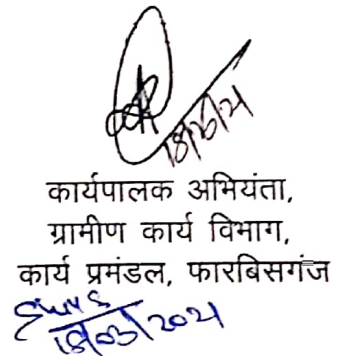 कार्यपालक अभियंता,
ग्रामीण कार्य विभाग,
कार्य प्रमंडल, फारबिसगंज
18/03/2021